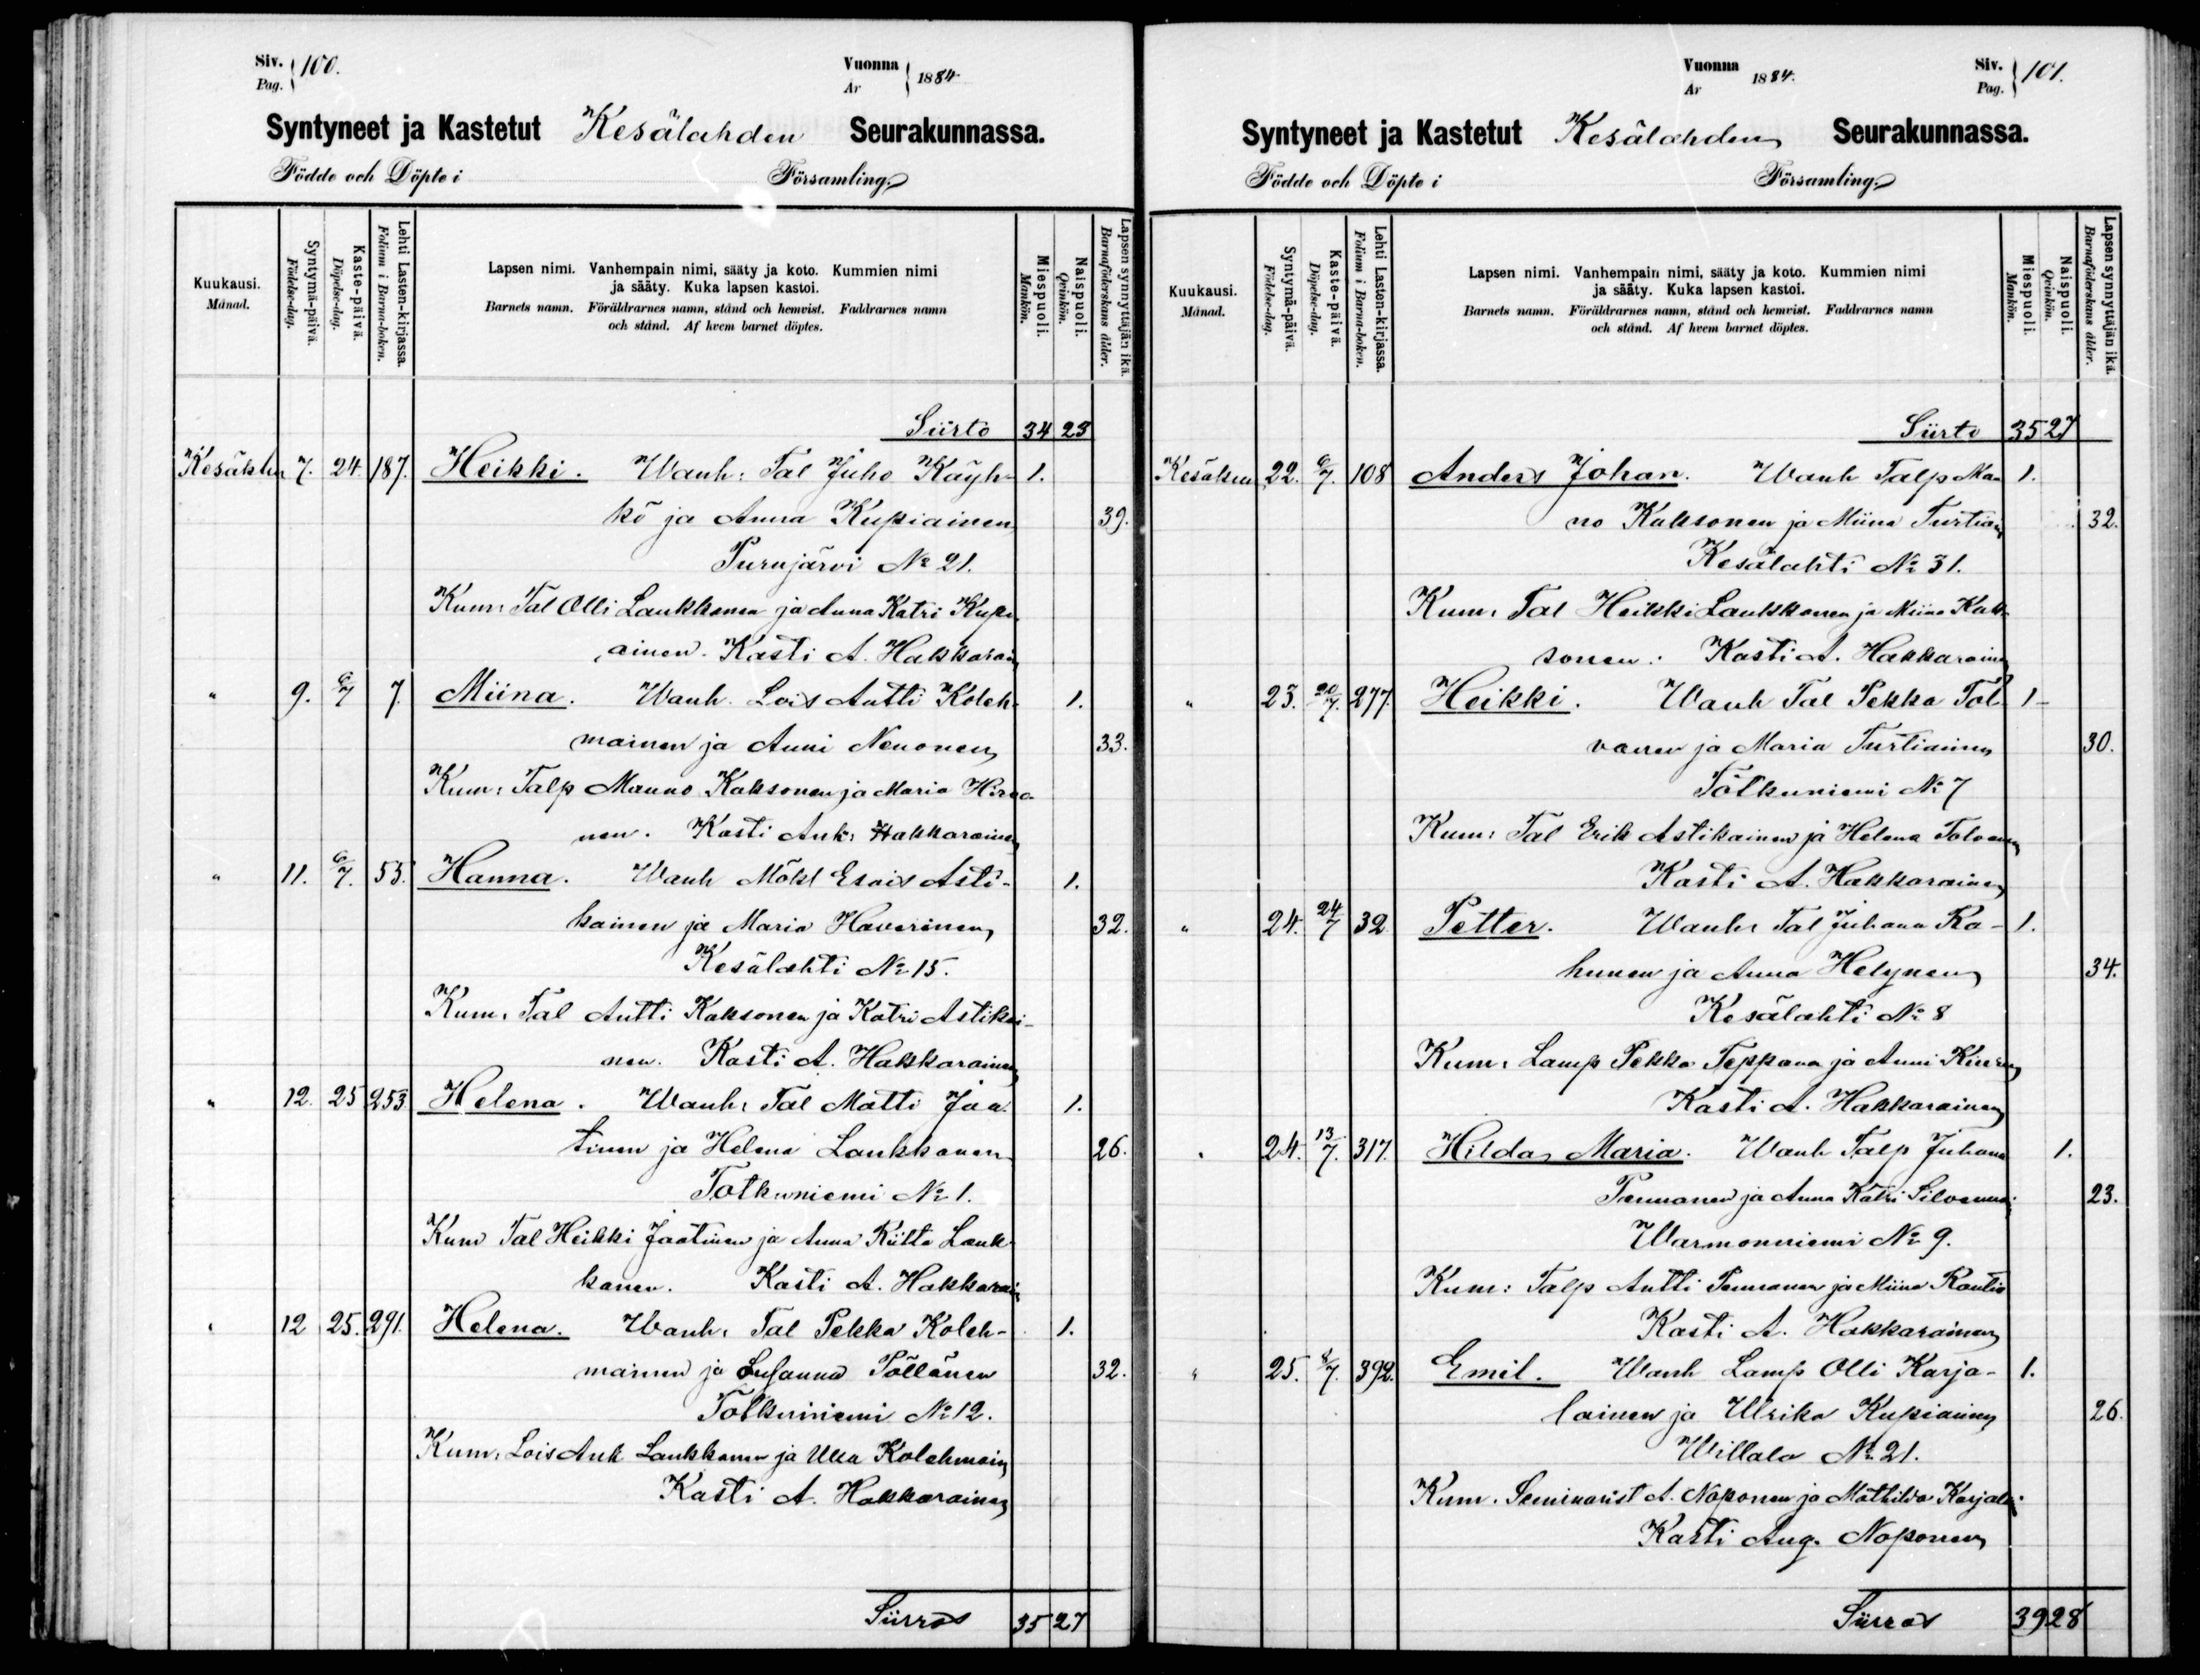 Siv. Pag. 100.
Vuonna År 1884.
Syntyneet ja Kastetut Kesälahden Seurakunnassa.
Födde och Döpte i Församling.
Kuukausi. Månad.
Syntymä-päivä. Födelse-dag.
Kaste-päivä. Döpelse-dag.
Lehti Lasten-kirjassa. Folium i Barna-boken.
Lapsen nimi. Vanhempain nimi, sääty ja koto. Kummien nimi
ja sääty. Kuka lapsen kastoi.
Barnets namn. Föräldrarnes namn, stånd och hemvist. Faddrarnes namn
och stånd. Af hvem barnet döptes.
Miespuoli. Mankön.
Naispuoli. Qvinkön.
Lapsen synnyttäjän ikä. Barnaföderskans ålder.
Siirto 34 23
7. 24. 187. Heikki. Wanh: Tal Juho Käyh- 1.
kö ja Anna Kupiainen 39.
Purujärvi No 21.
Kum: Tal Olli Laukkanen ja Anna Katri Kupi
ainen. Kasti A. Hakkarain
" 9. 6/7 7. Miina. Wanh. Lois Antti Koleh- 1.
mainen ja Anni Nenonen 33.
Kum: Talp Manno Kaksonen ja Maria Hirvo-
nen. Kasti Ant: Hakkarainen
" 11. 6/7. 55. Hanna. Wanh Mökl Esais Asti- 1.
kainen ja Maria Haverinen 32.
Kesälahti No 15.
Kum: Tal Antti Kaksonen ja Katri Astikai-
nen. Kasti A. Hakkarainen
" 12. 25 253 Helena. Wanh: Tal Matti Jaa 1.
tinen ja Helena Laukkanen 26.
Totkuniemi No 1.
Kum Tal Heikki Jaatinen ja Anna Riitta Lauk
kanen. Kasti A. Hakkarain
" 12 25. 291. Helena. Wanh: Tal Pekka Koleh- 1.
mainen ja Susanna Pöllänen 32.
Totkuniemi No 12.
Kum: Lois Ant Laukkanen ja Ulla Kolehmain
Kasti A. Hakkarainen
Siirros 35 27
Vuonna År 1884.
Siv. Pag. 101.
Syntyneet ja Kastetut Kesälahden Seurakunnassa.
Födde och Döpte i Församling.
Kuukausi. Månad.
Syntymä-päivä. Födelse-dag.
Kaste-päivä. Döpelse-dag.
Lehti Lasten-kirjassa. Folium i Barna-boken.
Lapsen nimi. Vanhempain nimi, sääty ja koto. Kummien nimi
ja sääty. Kuka lapsen kastoi.
Barnets namn. Föräldrarnes namn, stånd och hemvist. Faddrarnes namn
och stånd. Af hvem barnet döptes.
Miespuoli. Mankön.
Naispuoli. Qvinkön.
Lapsen synnyttäjän ikä. Barnaföderskans ålder.
Siirto 35 27
Kesäkuu 22. 6/7. 108 Anders Johan. Wanh Talp Ma- 1.
no Kaksonen ja Miina Turtiain 32.
Kesälahti No 31.
Kum: Tal Heikki Laukkanen ja Miina Kak-
sonen. Kasti A. Hakkarainen
" 23. 20/7. 277. Heikki. Wanh Tal Pekka Tol 1
vanen ja Maria Turtiainen 30.
Totkuniemi No 7
Kum: Tal Erik Astikainen ja Helena Tolvanen
Kasti A. Hakkarainen
" 24. 24/7 32 Petter. Wanh: Tal Juhana Ro- 1.
hunen ja Anna Helynen 34.
Kesälahti No 8
Kum: Lamp Pekka Teppana ja Anni
Kasti A. Hakkarainen
" 24. 13/7. 317. Hilda Maria. Wanh Talp Juhana 1.
Pennanen ja Anna Katri Silvennoi 23.
Warmonniemi No 9.
Kum: Talp Antti Pennanen ja Miina Rautio
Kasti A. Hakkarainen
" 25. 8/7. 392. Emil. Wanh Lamp Olli Karja- 1.
lainen ja Ulrika Kupiainen 26.
Willala No 21.
Kum. Seminarist A. Noponen ja Mathilda Karjalai
Kasti Aug. Noponen
Siirros 39 28